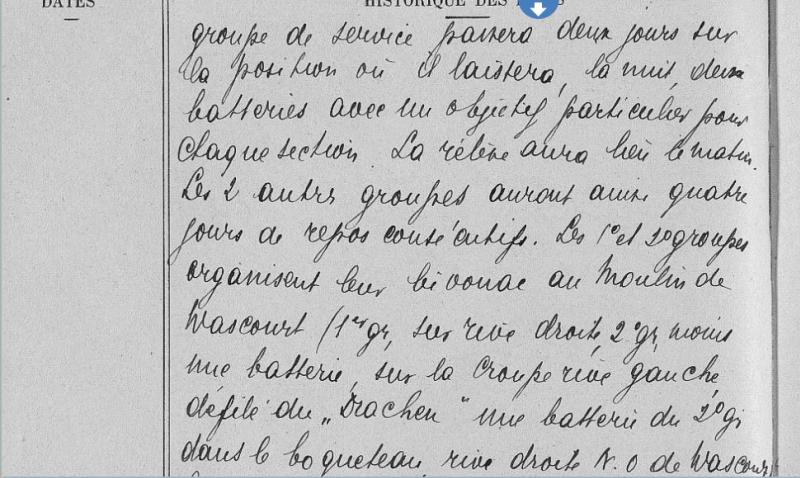 DATES
HISTORIQUE DES
groupe de service passera deux jours sur
la position où il laissera, la nuit, deux
batteries avec un objectif particulier pour
chaque section. La relève aura lieu le matin.
Les 2 autres groupes auront ainsi quatre
jours de repos consécutifs. Les 1er et 2e groupes
organisent leur bivouac au Moulin de
Wascourt (1er gr, sur rive droite, 2e gr, moins
une batterie, sur la croupe rive gauche,
défilé du „Drachen" une batterie du 2e gr
dans le boqueteau rive droite N.O de Wascourt